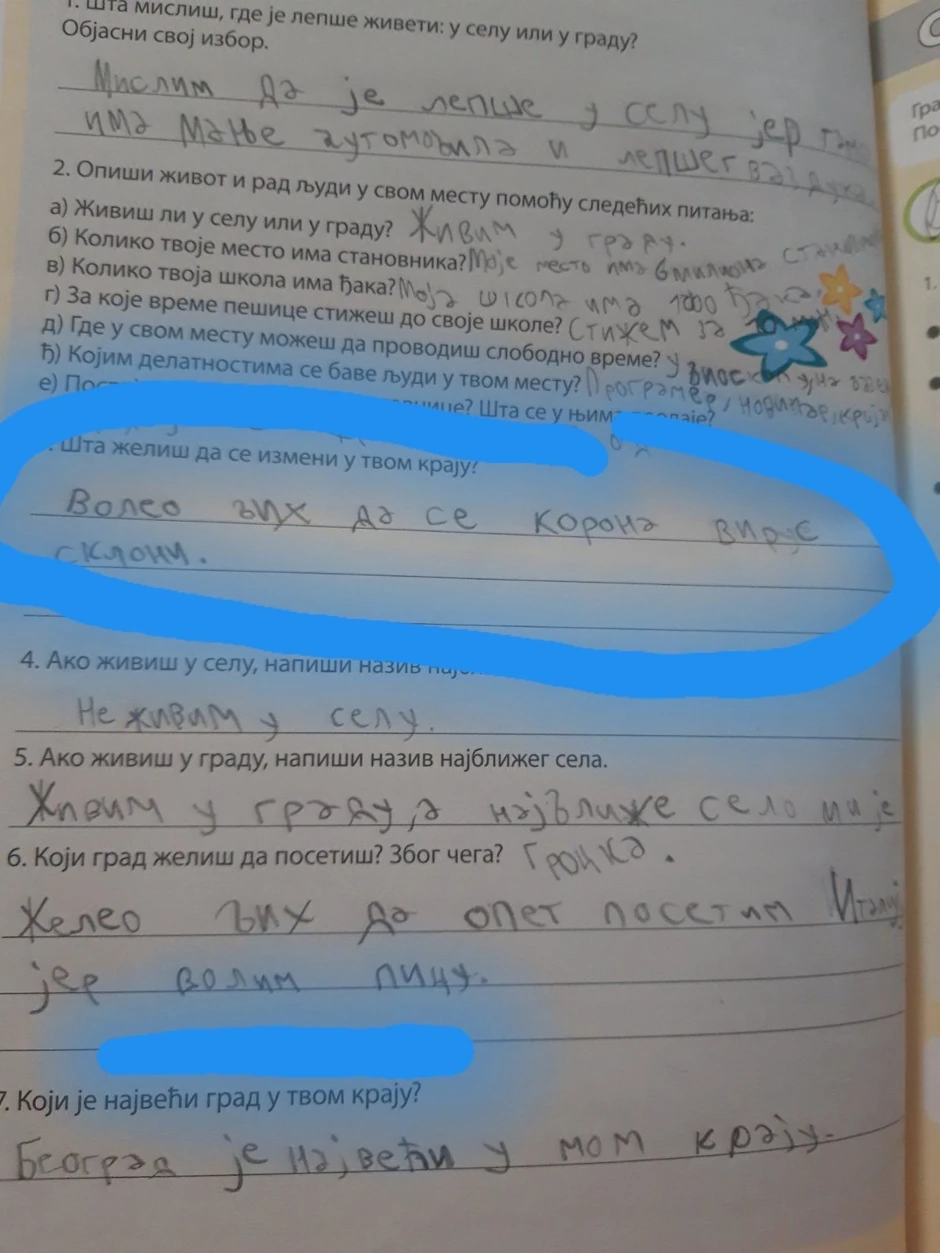 1. Шта мислиш, где је лепше живети: у селу или у граду?
Објасни свој избор.
Мислим да је лепше у селу јер
има мање аутомобила и лепшег ваздуха
2. Опиши живот и рад људи у свом месту помоћу следећих питања:
а) Живиш ли у селу или у граду? Живим у граду.
б) Колико твоје место има становника? Моје место има 6 милиона
в) Колико твоја школа има ђака? Моја школа има 1000 ђака.
г) За које време пешице стижеш до своје школе? Стижем за
д) Где у свом месту можеш да проводиш слободно време? У
ђ) Којим делатностима се баве људи у твом месту? Програмер,
е) Шта се у
Шта желиш да се измени у твом крају?
Волео бих да се корона вирус
склони.
4. Ако живиш у селу, напиши назив
Не живим у селу.
5. Ако живиш у граду, напиши назив најближег села.
Живим у граду, а најближе село ми је
6. Који град желиш да посетиш? Због чега? Гроцка.
Желео бих да опет посетим
јер волим пицу.
7. Који је највећи град у твом крају?
Београд је највећи у мом крају.
Гра
По
1.